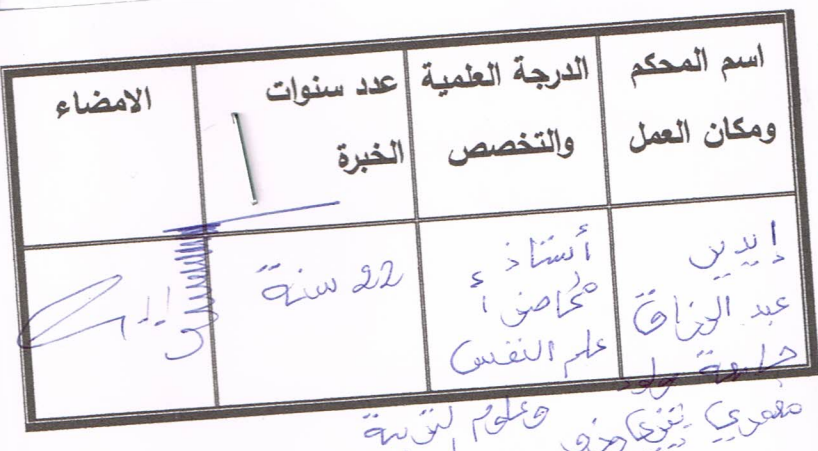 اسم المحكم
ومكان العمل
الدرجة العلمية
والتخصص
عدد سنوات
الخبرة
الامضاء
إيدير
عبد الرزاق
جامعة مولود
معمري تيزي وزو
أستاذ
محاضر أ
علم النفس
وعلوم التربية
22 سنة